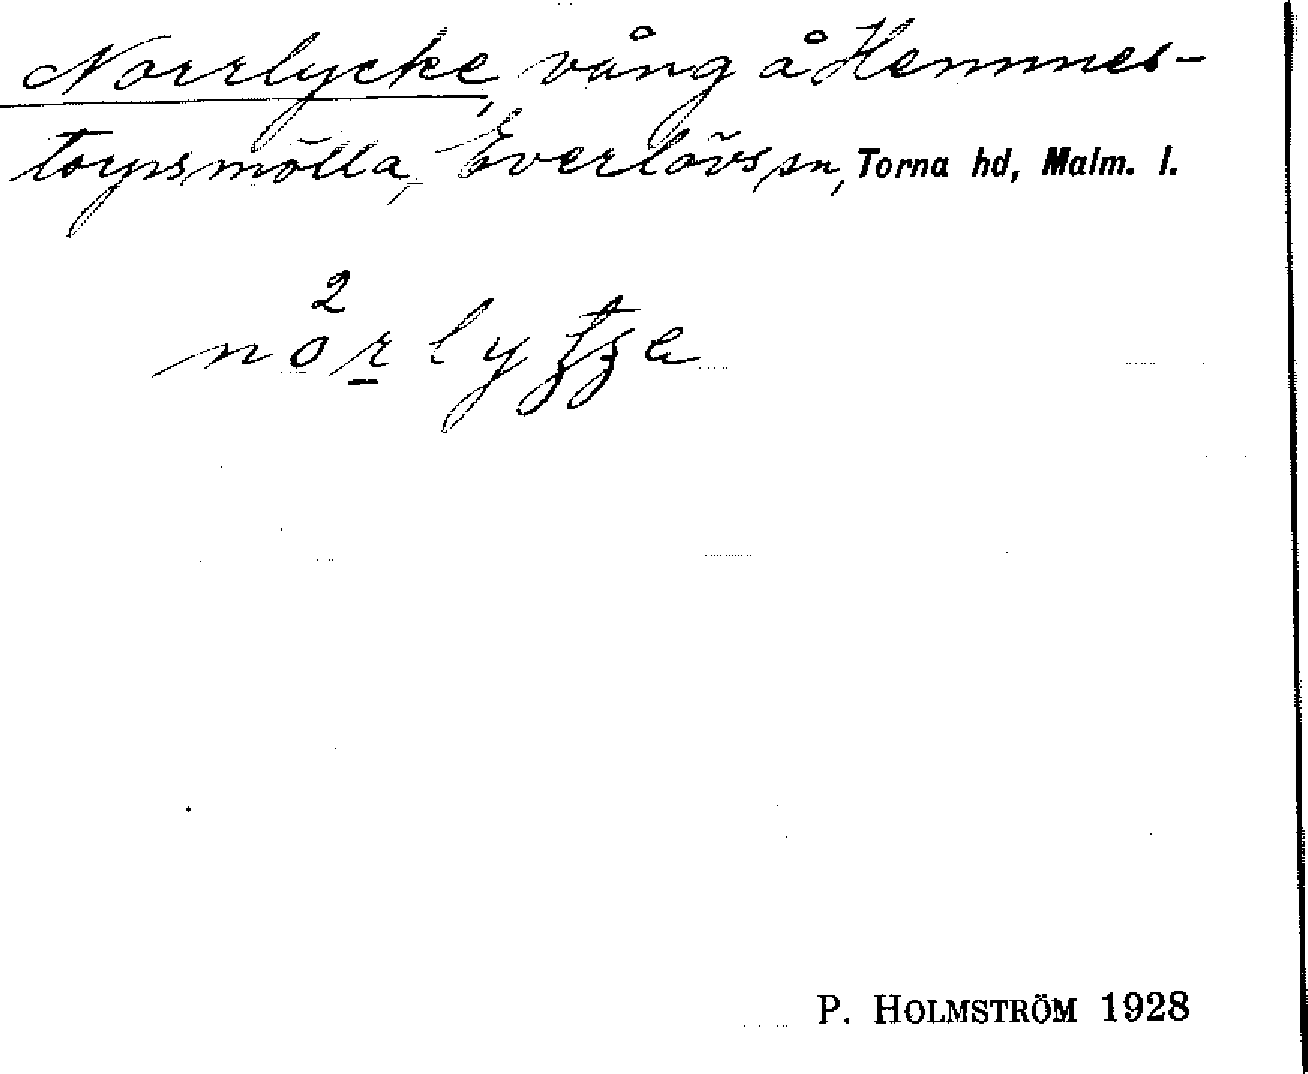 Norrlycke, vång å Hemmes-
torpsmölla, Everlövs sn, Torna hd, Malm. l.
2
norlytʒe
P. HOLMSTRÖM 1928